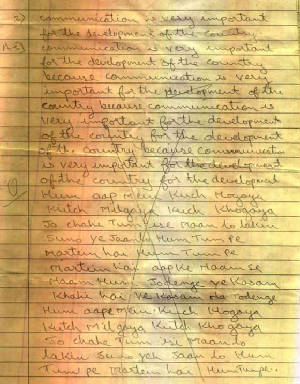 2) communication is very important
for the development of the country
communication is very important
for the development of the country
because communication is very
important for the development of the
country because communication is
very important for the development
of the country for the development
of the country because communication
is very important for the development
of the country for the development
Hum aap mein Kuch Hogaya
Kutch Milgaya Kuch Khogaya
Jo chahe Tum ise Maan lo lakin
Suno ye Jaanlo Hum Tum Pe
Martein hai Hum Tum Pe
Martein hai aap Ke Naam se
Naam Humo Jodenge ye Kasam
Khahe hai ye Kasam na Todenge
Hum aap Mein Kuch Hogaya
Kutch Milgaya Kutch Khogaya
Jo chahe Tum ise Maanlo
lakin Suno yeh Jaan lo Hum
Tum pe Martein hai Hum Tumpe.